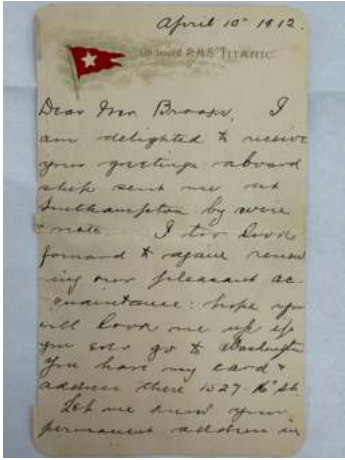 April 10th 1912.
On board R.M.S. "TITANIC"
Dear Mr. I
am delighted to receive
your greetings aboard
ship sent me at
Southampton by wire
& note. I too look
forward to again renew
ing our pleasant ac-
quaintance: hope you
will look me up if
you ever go to Washington
You have my card &
address there 1527- 16" St.
Let me know your
permanent address in